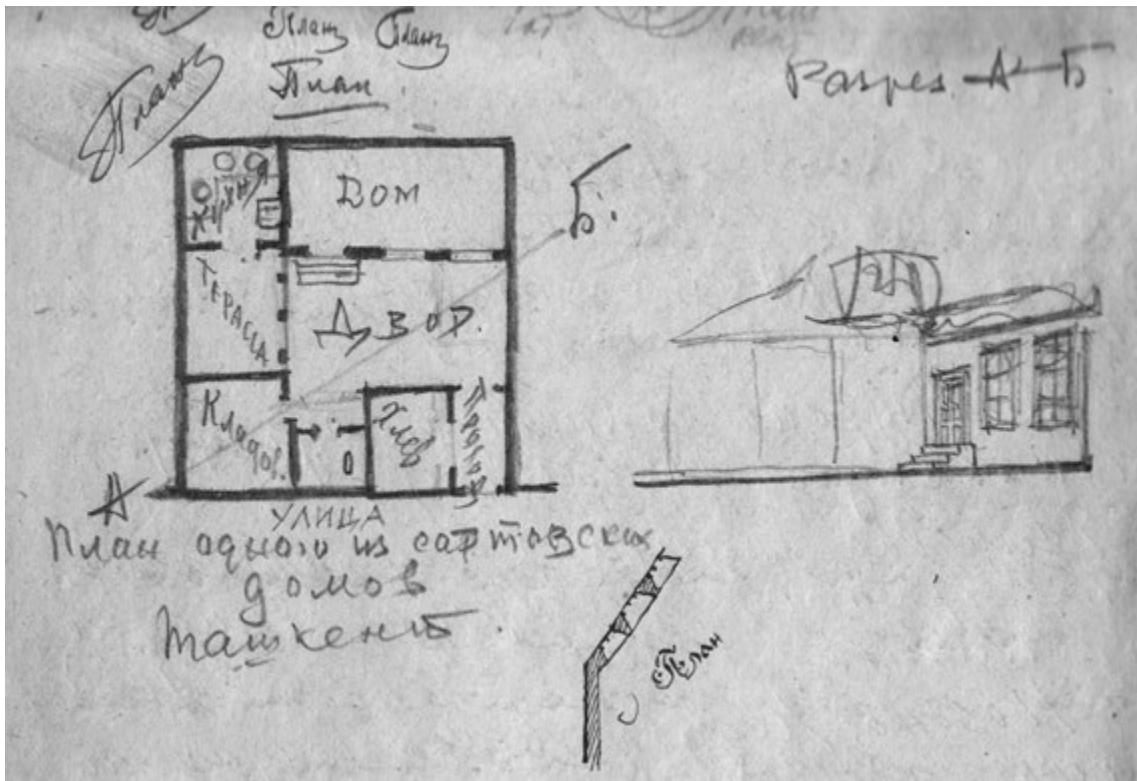 Планъ Планъ
Планъ
План
Разрез А-Б
Кухня
Дом
Б.
Тарасса
Двор.
Кладов.
Хлев
Проход
А
УЛИЦА
План одного из сартовских
домов
Ташкент.
План